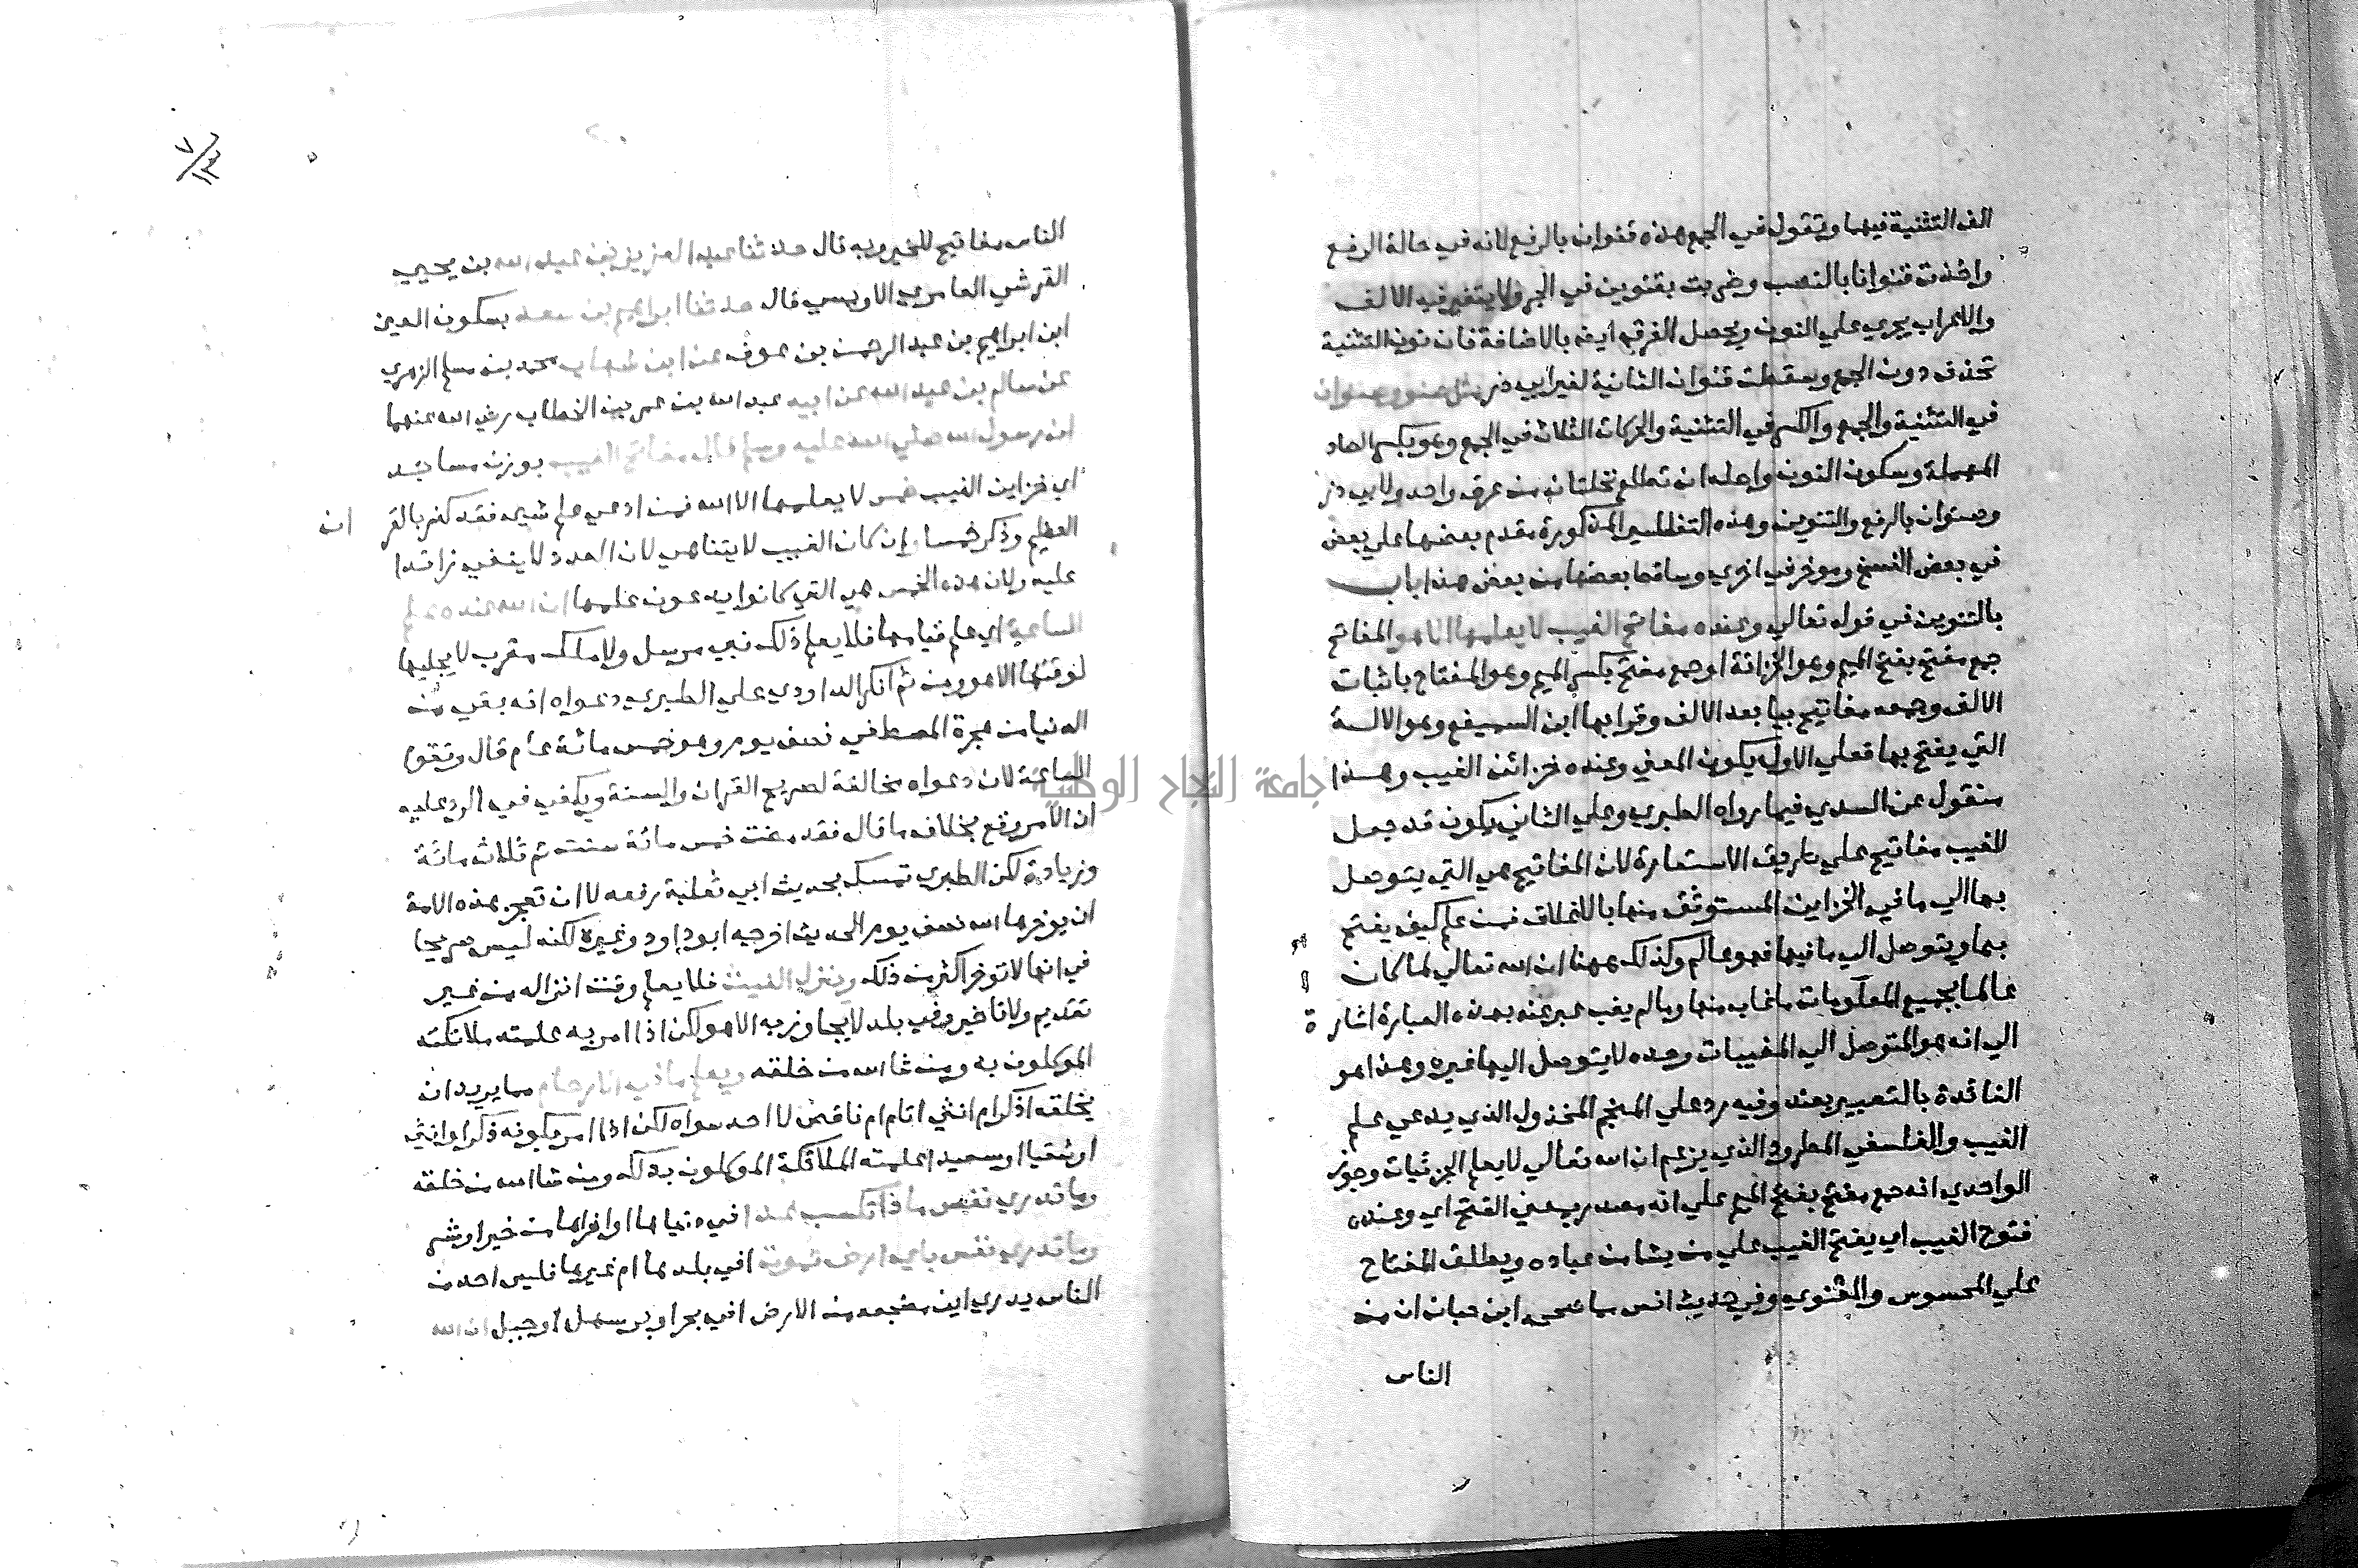 الف التثنية فيهما وتقول في الجمع هذه قنوان بالرفع لانه في حالة الرفع
واخذت قنوانا بالنصب وضربت بقنوين في الجر ولا يتغير فيه الالف
والاعراب يجري علي النون ويحصل الفرق ايضا بالاضافة فان نون التثنية
تحذف دون الجمع وسقطت قنوان الثانية لغير ابي ذر مثل صنو وصنوان
في التثنية والجمع والكسر في التثنية والحركات الثلاث في الجمع وهو بكسر الصاد
المهملة وسكون النون واصله ان تطلع نخلتان من عرق واحد ولابي ذر
وصنوان بالرفع والتنوين وهذه التفاسير المذكورة مقدم بعضها علي بعض
في بعض النسخ وموخر في اخري وساقط بعضها من بعض هذا باب
بالتنوين في قوله تعالي وعنده مفاتح الغيب لا يعلمها الا هو المفاتح
جمع مفتح بفتح الميم وهو الخزانة او جمع مفتح بكسر الميم وهو المفتاح باثبات
الالف وجمعه مفاتيح بيا بعد الالف وقرا بها ابن السميفع وهو الالة
التي يفتح بها فعلي الاول يكون المعني وعنده خزائن الغيب وهذا
منقول عن السدي فيما رواه الطبري وعلي الثاني يكون قد جعل
للغيب مفاتيح علي طريق الاستعارة لان المفاتيح هي التي يتوصل
بها الي ما في الخزاين المستوثق منها بالاغلاق فمن علم كيف يفتح
بها ويتوصل الي ما فيها فهو عالم وكذلك ههنا ان الله تعالي لما كان
عالما بجميع المعلومات ما غاب منها وما لم يغب عبر عنه بهذه العبارة اشار ة
الي انه هو المتوصل الي المغيبات وحده لا يتوصل اليها غيره وهذا هو
الفائدة بالتعبير بعند وفيه رد علي المنجم المخذول الذي يدعي علم
الغيب والفلسفي المطرود الذي يزعم ان الله تعالي لا يعلم الجزئيات وجوز
الواحدي انه جمع مفتح بفتح الميم علي انه مصدر بمعني الفتح اي وعنده
فتوح الغيب اي يفتح الغيب علي من يشا من عباده ويطلق المفتاح
علي المحسوس والمعنوي وفي حديث انس مما صححه ابن حبان ان من
الناس
٧
١٣
الناس مفاتيح للخير وبه قال حدثنا عبد العزيز بن عبد الله بن يحيي
القرشي العامري الاويسي قال حدثنا ابراهيم بن سعد بسكون العين
ابن ابراهيم بن عبد الرحمن بن عوف عن ابن شهاب محمد بن مسلم الزهري
عن سالم بن عبد الله عن ابيه عبد الله بن عمر بن الخطاب رضي الله عنهما
ان رسول الله صلي الله عليه وسلم قال مفاتح الغيب بوزن مساجد
اي خزاين الغيب خمس لا يعلمها الا الله فمن ادعي علم شيء فقد كفر بالقر ان
العظيم وذكر خمسا وان كان الغيب لا يتناهي لان العدد لا ينفي زائدا
عليه ولان هذه الخمس هي التي كانوا يدعون علمها ان الله عنده علم
الساعة اي علم قيامها فلا يعلم ذلك نبي مرسل ولا ملك مقرب لا يجليها
لوقتها الا هو ومن ثم انكر الداودي علي الطبري دعواه انه بقي من
الدنيا من هجرة المصطفي نصف يوم وهو خمس مائة عام قال وتقوم
الساعة لان دعواه مخالفة لصريح القران والسنة ويكفي في الرد عليه
ان الامر وقع بخلاف ما قال فقد مضت خمس مائة سنة ثم ثلاث مائة
وزيادة لكن الطبري تمسك بحديث ابي ثعلبة رفعه لا ان تعجز هذه الامة
ان يوخرها الله نصف يوم الحديث اخرجه ابو داود وغيره لكنه ليس صريحا
في انها لا توخر اكثر من ذلك وينزل الغيث فلا يعلم وقت انزاله من غير
تقديم ولا تاخير وفي بلد لا يجاوز به الا هو لكن اذا امر به علمته ملائكته
الموكلون به ومن شا الله من خلقه ويعلم ما في الارحام مما يريد ان
يخلقه اذكر ام انثي اتام ام ناقص لا احد سواه لكن اذا امر بكونه ذكرا او انثي
او شقيا او سعيدا علمته الملائكة الموكلون بذلك ومن شا الله من خلقه
وما تدري نفس ماذا تكسب غدا في دنياها او اخراها من خير او شر
وما تدري نفس باي ارض تموت افي بلدها ام غيرها فليس احد من
الناس يدري اين مضجعه من الارض افي بحر او بر سهل او جبل ان الله
جامعة النجاح الوطنية